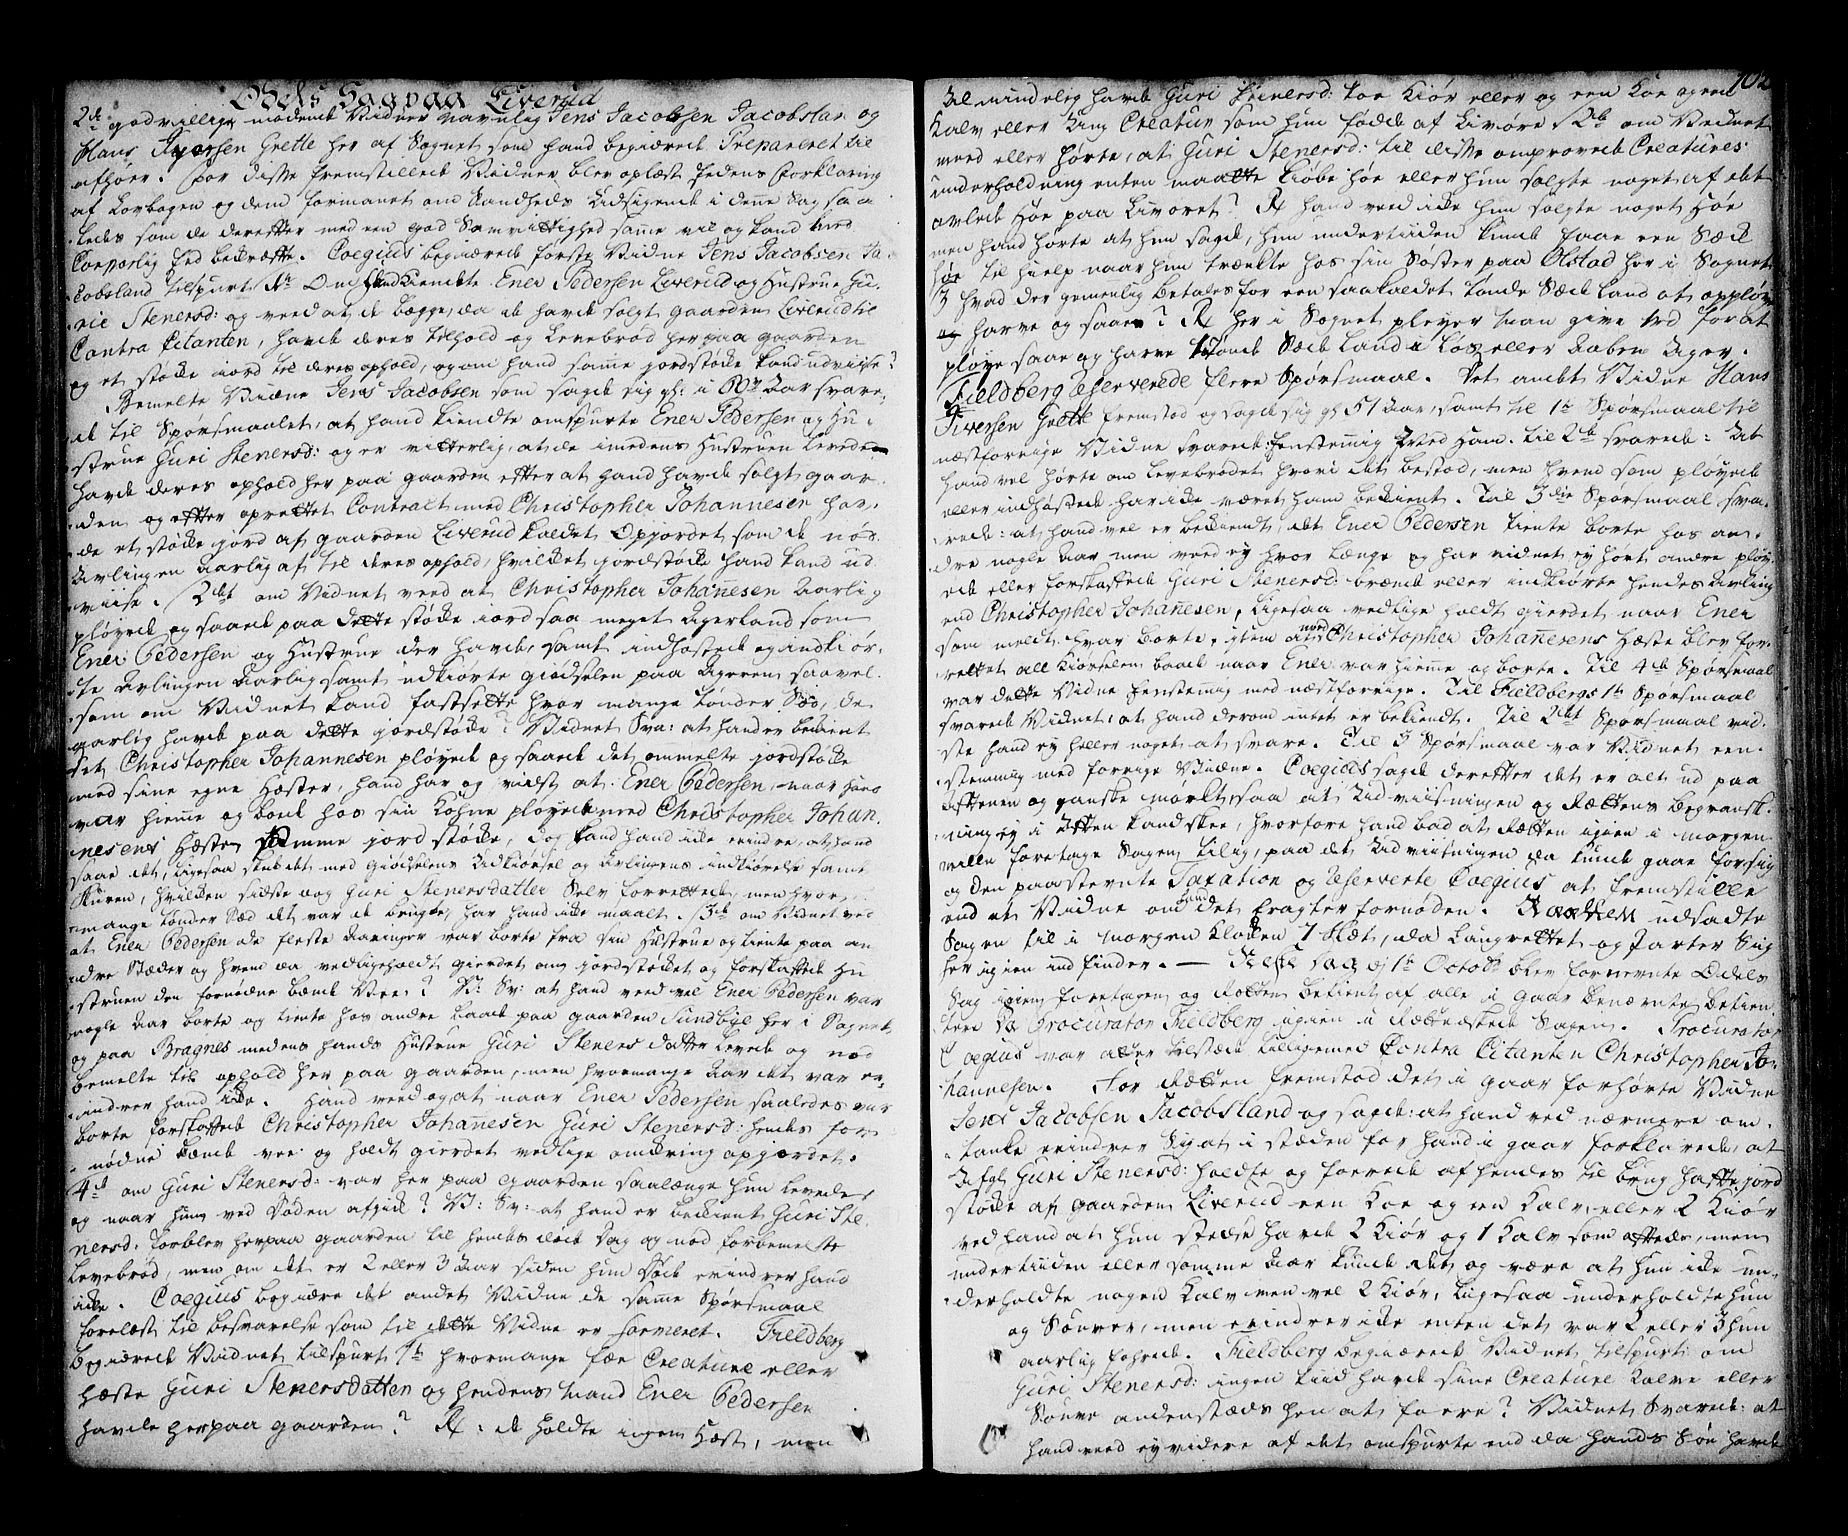 Odels Sag paa Liverud
2de godvillige mødende Vidner navnlig Jens Jacobsen Jacobslan og
Hans Iversen Grette her af Sognet som hand begiærede Præpareret til
afhøer. For disse fremstillede Vidner blev oplæst Eedens Forklaring
af Lovbogen og dem formanet om Sandheds Udsigende i denne Sag saa-
ledes som de derefter med een god Samvittighed samme vil og kand ved
Corporlig Eed bekræfte. Coegius begiærede første Vidne Jens Jacobsen Ja-
cobsland tilspurt 1te Om hand kiendte Ener Pedersen Liverud og Hustrue Gu-
rie Stenersd: og veed at de bægge, da de havde solgt gaarden Liverud til
Contra Citanten, havde deres tilhold og Levebrød her paa gaarden
og et støcke jord til deres ophold, og om hand samme jordstøcke kand udviise?
Bemelte Vidne Jens Jacobsen som sagde sig gl: i 60de Aar svare-
de til Spørsmaalet, at hand kiendte omspurte Ener Pedersen og Hu-
strue Guri Stenersd: og er vitterlig, at de imedens Hustruen levede
havde deres ophold her paa gaarden efter at hand havde solgt gaar-
den og efter oprettet Contract med Christopher Johannesen hav-
de et støcke jord af gaarden Liverud kaldet Opjordet som de nød
Avlingen aarlig af til deres ophold, hvilket jordstøcke hand kand ud-
viise. 2det om Vidnet veed at Christopher Johannesen Aarlig
pløyede og saaede paa dette støcke jord saa meget Agerland som
Ener Pedersen og Hustrue der havde, samt indhøstede og indkiør-
te Avlingen Aarlig samt udkiørte giødselen paa Ageren saavel
som om Vidnet kand fastsette hvor mange tønder Sæd, de
aarlig havde paa dette jordstøcke? Vidnet Sva: at hand er bekient
det Christopher Johannesen pløyede og saaede det ommelte jordstøcke
med sine egne Hæster, hand har og vidst at Ener Pedersen, naar hand
var hiemme og boede hos sin Kohne pløyede med Christopher Johan-
nesens Hæster samme jordstøcke, dog kand hand icke erindre, at hand
saae det, ligesaa skede det med Giødselens Udkiørsel og Avlingens indkiørelse samt
Skuren, hvilken sidste dog Guri Stenersdatter Selv forrettede, men hvor
mange tønder Sæd det var de brugte, har hand icke maalt. 3de om Vidnet ved
at Ener Pedersen de fleste Aaringer var borte fra sin Hustrue og tiente paa an-
dre Stæder og hvem da vedligeholdt gierdet om jordstøcket og forskaffede Hu-
struen den fornødne brænde Vee? V: Sv: at hand veed vel Ener Pedersen var
nogle Aar borte og tiente hos andre baade paa gaarden Sundbye her i Sognet
og paa Bragnes medens hands Hustrue Guri Stenersdatter Levede og nød
bemelte til ophold her paa gaarden, men hvormange Aar det var er-
indrer hand icke. Hand veed og at naar Ener Pedersen saaledes var
borte forskaffede Christopher Johannesen Guri Stenersd: hendes for-
nødne brende vee og holdt gierdet vedlige omkring opjordet.
4de om Guri Stenersd: var her paa gaarden saalænge hun levede
og naar hun ved Døden afgick? V: Sv: at hand er bekient Guri Ste-
nersd: forblev her paa gaarden til hendes døde Dag og nød forbemelte
Levebrød, men om det er 2 eller 3 Aar siden hun døde erindrer hand
icke. Coegius begiærede det andet Vidne de samme Spørsmaal
forelæst til besvarelse som til dette Vidne er formeret. Fieldberg
begiærede Vidnet tilspurt 1te hvormange fæe Creature eller
Hæste Guri Stenersdatter og hendes Mand Ener Pedersen
havde her paa gaarden? R: de holdte ingen Hæst, men
102
Almindelig havde Guri Stenersd: toe kiør eller og een koe og eed
Kalv eller Ung Creatur som hun fødde af Livøre. 2de om Vidnet
veed eller hørte, at Guri Stenersd: til disse omprovede Creatures
underholdning enten maatte kiøbe høe eller hun solgte noget af det
avlede Høe paa Livoret? R hand veed icke hun solgte noget Høe
men hand hørte at hun sagde, hun undertiiden kunde faae een Sæck
høe til hielp naar hun trængte hos sin Søster paa Olstad her i Sognet.
3 hvad der gemenlig betales for een saakaldet tønde Sæde land at opploye
og harve og saae? R her i Sognet pleyer man give 1rd for at
pløye saae og harve 1 tønde Sæde Land i Løs eller Aaben Ager.
Fieldberg Reserverede flere Spørsmaal. Det andet Vidne Hans
Iversen Grette fremstod og sagde sig gl 51 Aar, samt til 1te Spørsmaal til
næstforrige Vidne svarede eenstemmig med ham. til 2de svarede: At
hand vel hørte om Levebrødet hvori det bestod, men hvem som pløyede
eller indhøstede har icke været ham bekient. Til 3die Spørsmaal sva-
rede: at hand vel er bekiendt, det Ener Pedersen tiente borte hos an-
dre nogle Aar men veed ey hvor længe og har vidnet ey hørt andre pløy-
ede eller forskaffede Guri Stenersd: brænde eller indkiørte hendes Avling
end Christopher Johannesen, ligesaa vedlige holdt gierdet naar Ener
som meest var borte, item at med Christopher Johannesens Hæste blev for-
rettet all kiørselen baade naar Ener var hiemme og borte. Til 4de Spørsmaal
var dette Vidne eenstemmig med næstforrige. Til Fieldbergs 1te Spørsmaal
svarede Vidnet, at hand derom intet er bekiendt. Til 2det Spørsmaal vid-
ste hand ey heller noget at svare. Til 3 Spørsmaal var Vidnet een-
stemmig med forrige Vidne. Coegius sagde derefter det er alt ud paa
Aftenen og ganske mørkt, saa at Udviisningen og Rettens Begransk-
ning ey i Aften kand skee, hvorfore hand bad at Retten igien i morgen
ville foretage Sagen tilig, paa det Udviisningen da kunde gaae for sig
og den paastevnte Taxation og Reserverte Coegius at fremstille
end et Vidne om hand det eragter fornøden. Retten udsadte
Sagen til i morgen klocken 7 Slet, da Laugrettet og Parter Sig
her igien indfinder. — Rette Dag d 1te Octobr blev fornevnte Odels
Sag igien foretagen og Retten bekient af alle i gaar benævnte betien-
tere da Procurator Fieldberg igien i Rette æskede Sagen. Procurator
Coegius var atter tilstæde tilligemed Contra Citanten Christopher Jo-
hannesen. For Retten fremstod det i gaar forhørte Vidne
Jens Jacobsen Jacobsland og sagde: at hand ved nærmere om-
tanke erindrer Sig at i stæden for hand i gaar forklarede at
Afgl Guri Stenersd: holdte og foerede af hendes til brug hafte jord
støcke af gaarden Liverud een Koe og een Kalv, eller 2 Kiør
ved hand at hun stedse havde 2 Kiør og 1 Kalv som oftest, men
undertiiden eller somme Aar kunde det og være at hun icke un-
derholdte nogen Kalv men vel 2 Kiør, Ligesaa underholdte hun
og Souver, men erindrer icke enten det var 2 eller 3 hun
aarlig foerede. Fieldberg begiærede Vidnet tilspurt om
Guri Stenersd: ingen tiid havde sine Creature Kalve eller
Souver andenstæds hen at foere? Vidnet Svarede: at
hand veed ey videre af det omspurte end da hands Søn havde